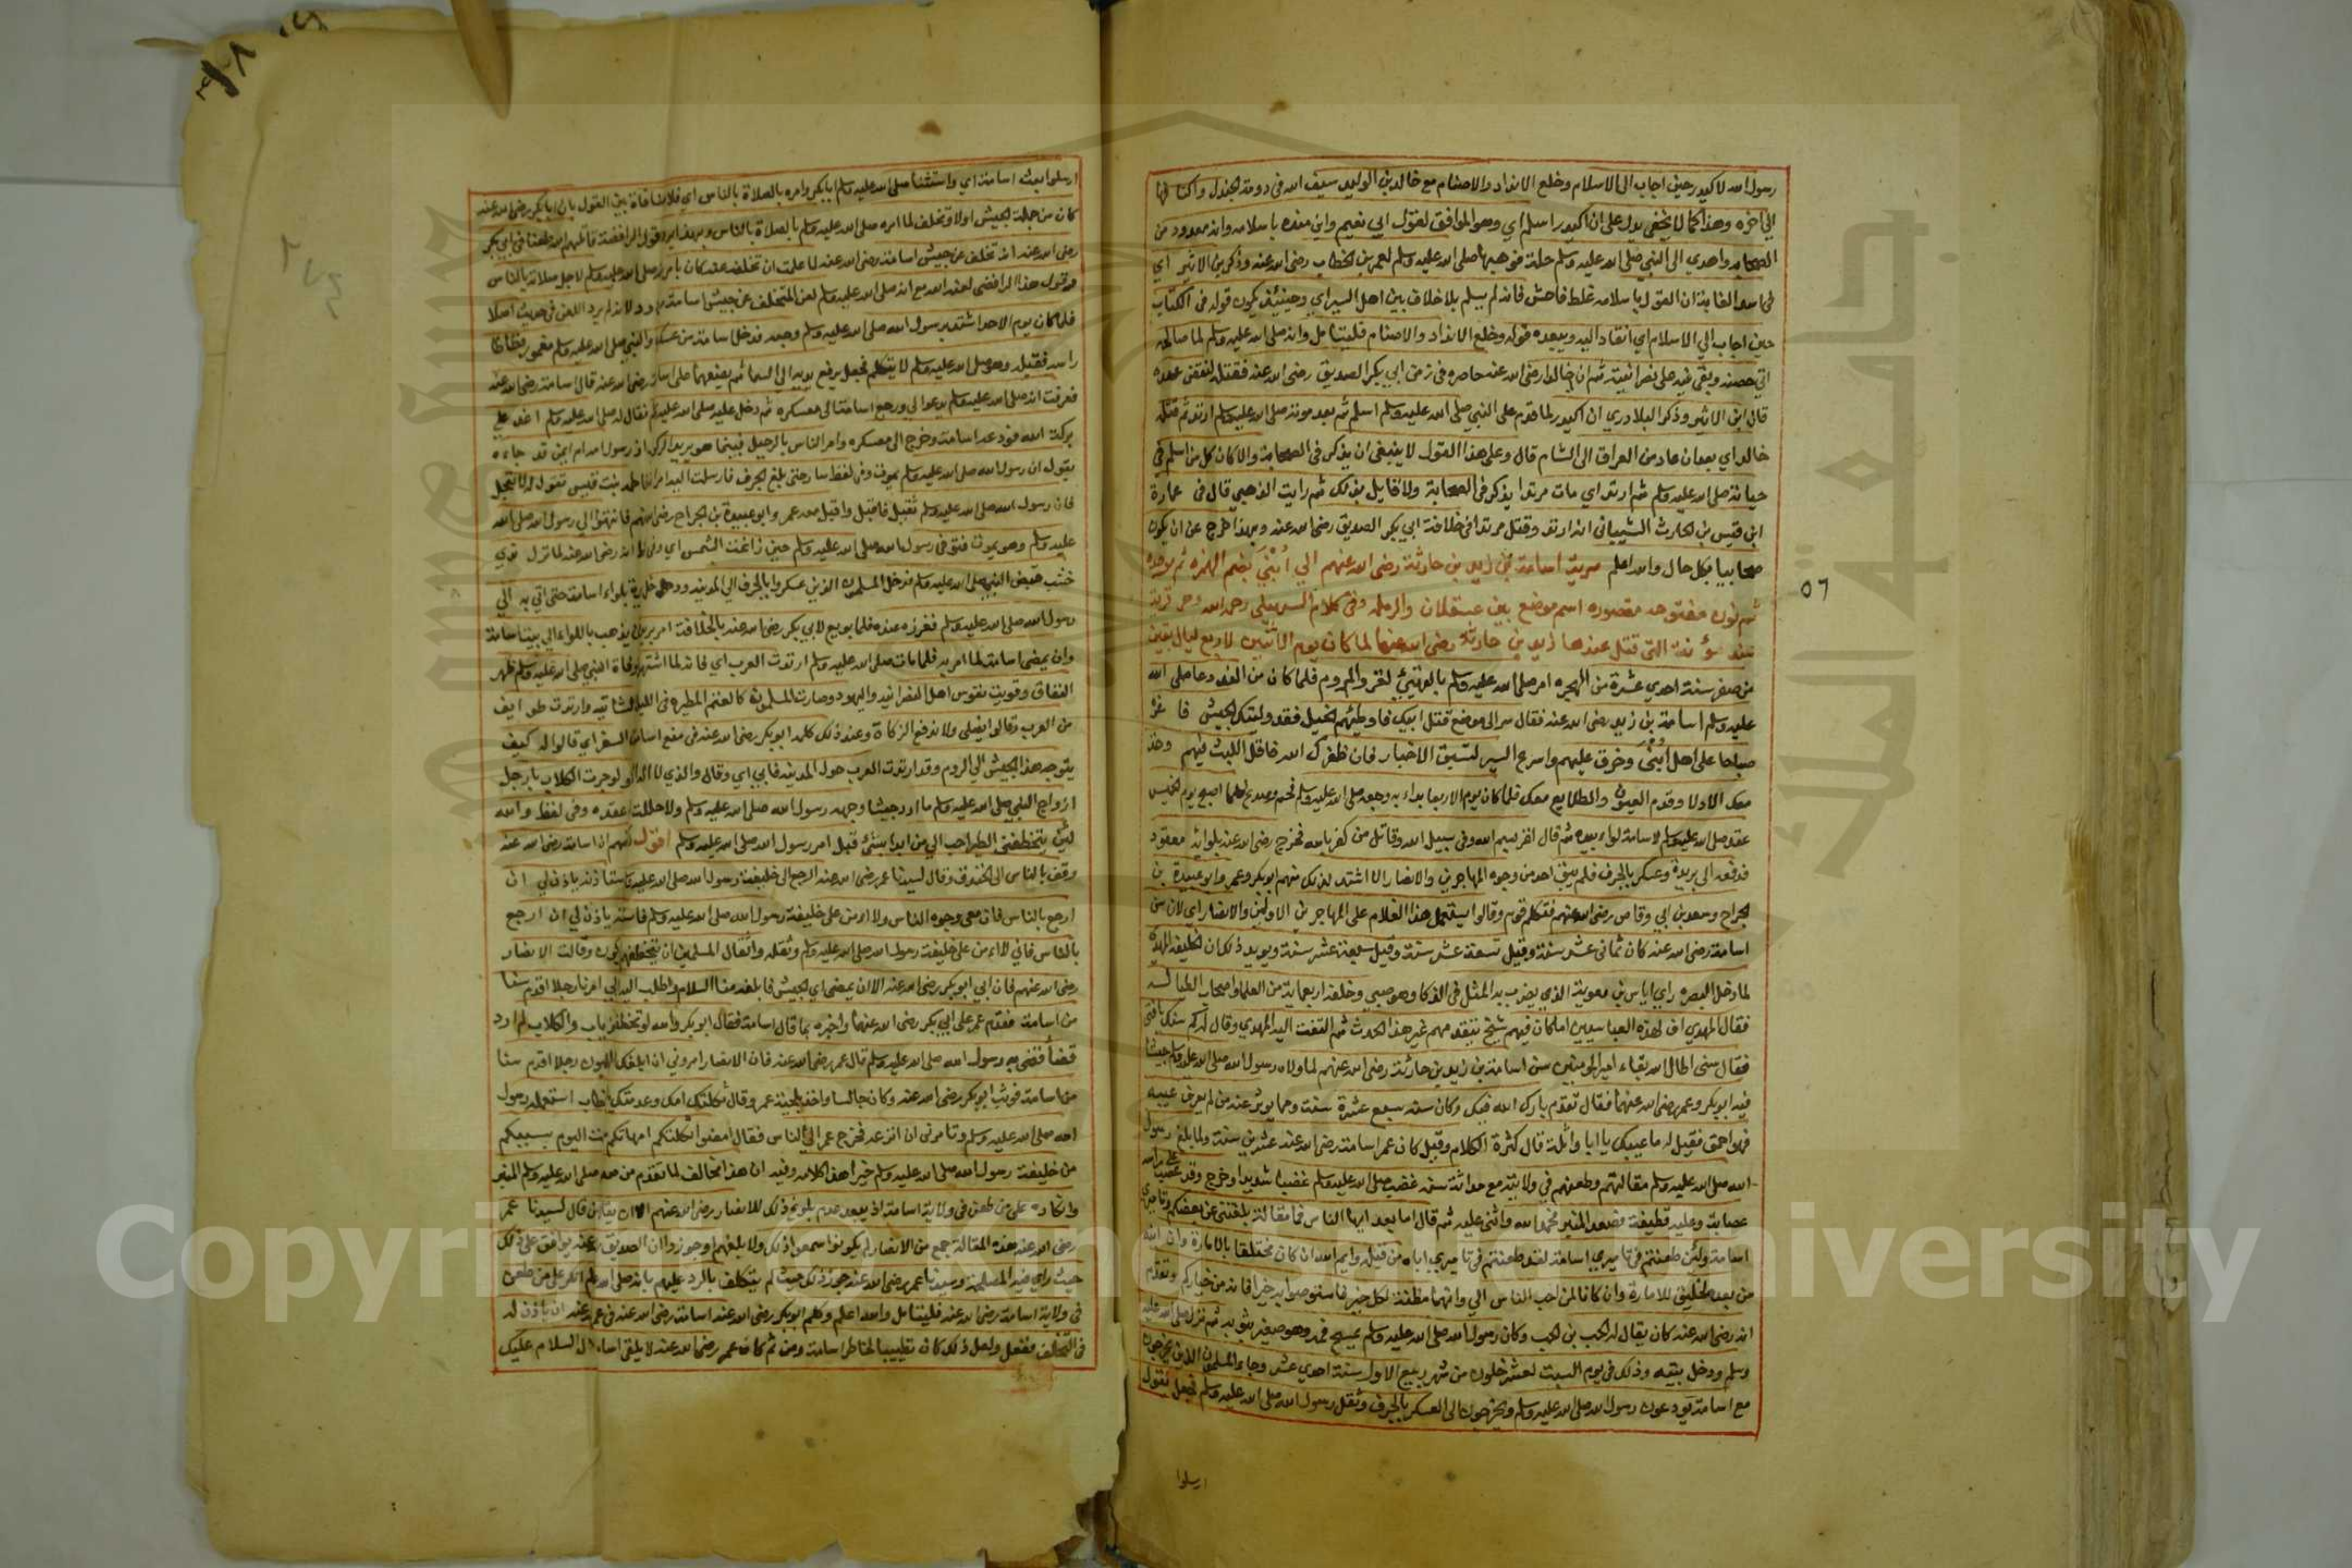 رسول الله لاكيدر حين اجاب الى الاسلام وخلع الانداد والاصنام مع خالد بن الوليد سيف الله في دومة الجندل واكنافها
الى اخره وهذا كما لا يخفى يدل على ان اكيدر اسلم اي وهو الموافق لقول ابي نعيم وابن منده باسلامه وانه معدود من
الصحابه واهدي الى النبي صلى الله عليه وسلم حلة فوهبها صلى الله عليه وسلم لعمر بن الخطاب رضى الله عنه وذكر بن الاثير اي
في اسد الغابة ان القول باسلامه غلط فاحش فانه لم يسلم بلا خلاف بين اهل السير اي وحينئذ يكون قوله في الكتاب
حين اجاب الي الاسلام اي انقاد اليه ويبعده قوله وخلع الانداد والاصنام فليتامل وانه صلى الله عليه وسلم لما صالحه
اتي حصنه وبقي فيه على نصرانيته ثم ان خالدا رضى الله عنه حاصره في زمن ابي بكر الصديق رضى الله عنه فقتله لنقض عهده
قال ابن الاثير وذكر البلادري ان اكيدر لما قدم على النبي صلى الله عليه وسلم اسلم ثم بعد موته صلى الله عليه وسلم ارتد ثم قتله
خالد اي بعد ان عاد من العراق الى الشام قال وعلى هذا القول لا ينبغى ان يذكر في الصحابة والا كان كل من اسلم في
حياته صلى الله عليه وسلم ثم ارتد اي مات مرتدا يذكر في الصحابة ولا قايل بذلك ثم رايت الذهبي قال في عمارة
ابن قيس بن الحارث الشيباني انه ارتد وقتل مرتدا في خلافة ابي بكر الصديق رضى الله عنه وبهذا خرج عن ان يكون
صحابيا بكل حال والله اعلم سرية اسامة بن زيد بن حارثة رضى الله عنهم الي أُبْنَي بضم الهمزة ثم موحدة
ثم نون مفتوحه مقصوره اسم موضع بين عسقلان والرمله وفي كلام السهيلي رحمه الله وهي قرية
عند مؤتة التي قتل عندها زيد بن حارثة رضى الله عنهما لما كان يوم الاثنين لاربع ليال بقين
من صفر سنة احدي عشرة من الهجره امر صلى الله عليه وسلم بالتهيئ لغزو الروم فلما كان من الغد دعا صلى الله
عليه وسلم اسامة بن زيد رضى الله عنه فقال سر الى موضع قتل ابيك فاوطئهم الخيل فقد وليتك الجيش فاغز
صباحا على اهل أُبْنَي وحرق عليهم واسرع السير لتسبق الاخبار فان ظفرك الله فاقل اللبث فيهم وخذ
معك الادلا وقدم العيون والطلايع معك فلما كان يوم الاربعا بداء به وجعه صلى الله عليه وسلم فحم وصدع فلما اصبح يوم الخميس
عقد صلى الله عليه وسلم لاسامة لواء بيده ثم قال اغز بسم الله وفى سبيل الله وقاتل من كفر بالله فخرج رضى الله عنه بلوائه معقود
فدفعه الى بريدة وعسكر بالجرف فلم يبق احد من وجوه المهاجرين والانصار الا اشتد لذلك منهم ابو بكر وعمر وابو عبيدة بن
الجراح وسعد بن ابي وقاص رضى الله عنهم فتكلم قوم وقالوا يستعمل هذا الغلام على المهاجرين الاولين والانصار اي لان سن
اسامة رضى الله عنه كان ثماني عشر سنة وقيل تسعة عشر سنة وقيل سبعة عشر سنة ويويد ذلك ان الخليفه المهدي
لما دخل البصره راي اياس بن معوية الذي يضرب به المثل في الذكا وهو صبي وخلفه اربعماية من العلما واصحاب الطيالسه
فقال المهدي اف لهذه العباسيين اما كان فيهم شيخ يتقدمهم غير هذا الحدث ثم التفت اليه المهدي وقال له كم سنك يا فتى
فقال سني اطال الله بقاء امير المومنين سن اسامة بن زيد بن حارثة رضى الله عنهم لما ولاه رسول الله صلى الله عليه وسلم جيشا
فيه ابو بكر وعمر رضى الله عنهما فقال تقدم بارك الله فيك وكان سنه سبع عشرة سنت ومما يوثر عنه من لم يعرف عيبه
فهو احمق فقيل له ما عيبك يا ابا واثلة قال كثرة الكلام وقيل كان عمر اسامة رضى الله عنه عشرين سنة ولما بلغ رسول
الله صلى الله عليه وسلم مقالتهم وطعنهم في ولايته مع حداثة سنه غضب صلى الله عليه وسلم غضبا شديدا وخرج وقد عصب على راسه
عصابة وعليه قطيفة فصعد المنبر فحمد الله واثنى عليه ثم قال اما بعد ايها الناس فما مقالة بلغتني عن بعضكم في تاميري
اسامة ولئن طعنتم في تاميري اسامة لقد طعنتم في تاميري اباه من قبله وايم الله ان كان لخليقا بالامارة وان ابنه
من بعده لخليق للامارة وان كانا لمن احب الناس الي وانهما مظنة لكل خير فاستوصوا به خيرا فانه من خياركم وتقدم
انه رضى الله عنه كان يقال له الحب بن الحب وكان رسول الله صلى الله عليه وسلم يمسح فمه وهو صغير بثوبه ثم نزل صلى الله عليه
وسلم ودخل بيته وذلك في يوم السبت لعشر خلون من شهر ربيع الاول سنة احدي عشر وجاء المسلمون الذين يخرجون
مع اسامة يودعون رسول الله صلى الله عليه وسلم ويخرجون الى العسكر بالجرف وثقل رسول الله صلى الله عليه وسلم فجعل يقول
ارسلوا
٥٦
ارسلوا بعث اسامة اي واستثنا صلى الله عليه وسلم ابا بكر وامره بالصلاة بالناس اي فلا منافاة بين القول بان ابا بكر رضى الله عنه
كان من جملة الجيش اولا وتخلف لما امره صلى الله عليه وسلم بالصلاة بالناس وبهذا يرد قول الرافضة قاتلهم الله طعنا في ابي بكر
رضى الله عنه انه تخلف عن جيش اسامة رضى الله عنه لما علمت ان تخلفه عنه كان بامره صلى الله عليه وسلم لاجل صلاته بالناس
وقول هذا الرافضى لعنه الله مع انه صلى الله عليه وسلم لعن المتخلف عن جيش اسامة مردود لانه لم يرد اللعن في حديث اصلا
فلما كان يوم الاحد اشتد برسول الله صلى الله عليه وسلم وجعه فدخل اسامة من عسكره والنبي صلى الله عليه وسلم مغمور فطاطا
راسه فقبله وهو صلى الله عليه وسلم لا يتكلم فجعل يرفع يديه الى السما ثم يضعهما على اسامة رضى الله عنه قال اسامة رضى الله عنه
فعرفت انه صلى الله عليه وسلم يدعو لي ورجع اسامة الى معسكره ثم دخل عليه صلى الله عليه وسلم فقال له صلى الله عليه وسلم اغد على
بركة الله فودعه اسامة وخرج الى معسكره وامر الناس بالرحيل فبينما هو يريد الركوب اذ رسول امه ام ايمن قد جاءه
يقول ان رسول الله صلى الله عليه وسلم يموت وفى لفظ سار حتى بلغ الجرف فارسلت اليه امراته فاطمه بنت قيس تقول له لا تعجل
فان رسول الله صلى الله عليه وسلم ثقيل فاقبل واقبل معه عمر وابو عبيدة بن الجراح رضى الله عنهم فانتهوا الي رسول الله صلى الله
عليه وسلم وهو يموت فتوفى رسول الله صلى الله عليه وسلم حين زاغت الشمس اي وفى لفظ انه رضى الله عنه لما نزل بذي
خشب قبض النبي صلى الله عليه وسلم فدخل المسلمون الذين عسكروا بالجرف الي المدينه ودخل بريدة بلواء اسامة حتى اتي به الى
رسول الله صلى الله عليه وسلم فغرزه عنده فلما بويع لابي بكر رضى الله عنه بالخلافة امر بريدة ان يذهب باللواء الي بيت اسامة
وان يمضى اسامة لما امر به فلما مات صلى الله عليه وسلم ارتدت العرب اي فانه لما اشتهر وفاة النبي صلى الله عليه وسلم ظهر
النفاق وقويت نفوس اهل النصرانيه واليهود وصارت المسلمون كالغنم المطيره في الليلة الشاتيه وارتدت طوايف
من العرب وقالوا نصلى ولا ندفع الزكاة وعند ذلك كلم ابو بكر رضى الله عنه في منع اسامة السفر اي قالوا له كيف
يتوجه هذا الجيش الي الروم وقد ارتدت العرب حول المدينه فابي اي وقال والذي لا اله الا هو لو جرت الكلاب بارجل
ازواج النبي صلى الله عليه وسلم ما ارد جيشا وجهه رسول الله صلى الله عليه وسلم ولا حللت عقده وفى لفظ والله
لئن تخطفني الطير احب الي من ابدا بشئ قبل امر رسول الله صلى الله عليه وسلم اقول ثم ان اسامة رضى الله عنه
وقف بالناس الى الخندق وقال لسيدنا عمر رضى الله عنه ارجع الى خليفة رسول الله صلى الله عليه وسلم فاستاذنه ياذن لي ان
ارجع بالناس فان معي وجوه الناس ولا امن على خليفة رسول الله صلى الله عليه وسلم فاستاذنه ياذن لي ان ارجع
بالناس فاني لا امن على خليفة رسول الله صلى الله عليه وسلم وثقله واثقال المسلمين ان يتخطفهم المشركون وقالت الانصار
رضى الله عنهم فان ابي ابو بكر رضى الله عنه الا ان يمضى اي الجيش فابلغه منا السلام واطلب اليه ان يولي امرنا رجلا اقدم سنا
من اسامة فقدم عمر على ابي بكر رضى الله عنهما واخبره بما قال اسامة فقال ابو بكر والله لو تخطفني الذياب والكلاب لم ارد
قضاء قضى به رسول الله صلى الله عليه وسلم قال عمر رضى الله عنه فان الانصار امروني ان ابلغك انهم يطلبون رجلا اقدم سنا
من اسامة فوثب ابو بكر رضى الله عنه وكان جالسا واخذ بلحية عمر وقال ثكلتك امك وعدمتك يا ابن الخطاب استعمله رسول
الله صلى الله عليه وسلم وتامرني ان انزعه فخرج عمر الي الناس فقال امضوا ثكلتكم امهاتكم ما لقيت اليوم بسببكم
من خليفة رسول الله صلى الله عليه وسلم خيرا هذا كلامه وفيه ان هذا يخالف لما تقدم من صعوده صلى الله عليه وسلم المنبر
وانكاره على من طعن في ولاية اسامة اذ يبعد عدم بلوغ ذلك للانصار رضى الله عنهم الا ان يقال من قال لسيدنا عمر
رضى الله عنه هذه المقالة جمع من الانصار لم يكونوا سمعوا ذلك ولا بلغهم او جوزوا ان الصديق رضى الله عنه يوافق على ذلك
حيث راي فيه المصلحة وسيدنا عمر رضى الله عنه جوز ذلك حيث لم يتكلف بالرد عليهم بانه صلى الله عليه وسلم انكر على من طعن
في ولاية اسامة رضى الله عنه فليتامل والله اعلم وكلم ابو بكر رضى الله عنه اسامة رضى الله عنه في عمر رضى الله عنه ان ياذن له
في التخلف ففعل ولعل ذلك كان تطييبا لخاطر اسامة ومن ثم كان عمر رضى الله عنه لا يلقى اسامة الا قال السلام عليك
جامعة الملك سعود
Copyright © King Saud University